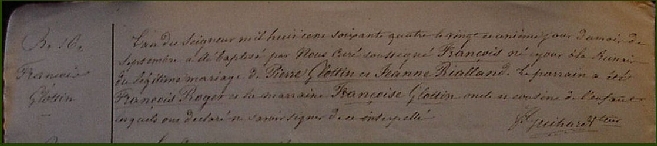 No 50.
François
Glottin
L'an du Seigneur mil huit cent soixante quatre le vingt neuvième jour du mois de
Septembre a été baptisé par Nous Curé soussigné François né
du légitime mariage de Pierre Glottin et Jeanne Rialland. Le parrain a été
François Roger et la marraine Françoise Glottin oncle et cousine de l'enfant
lesquels ont déclaré ne savoir signer de ce interpellé
Guihard